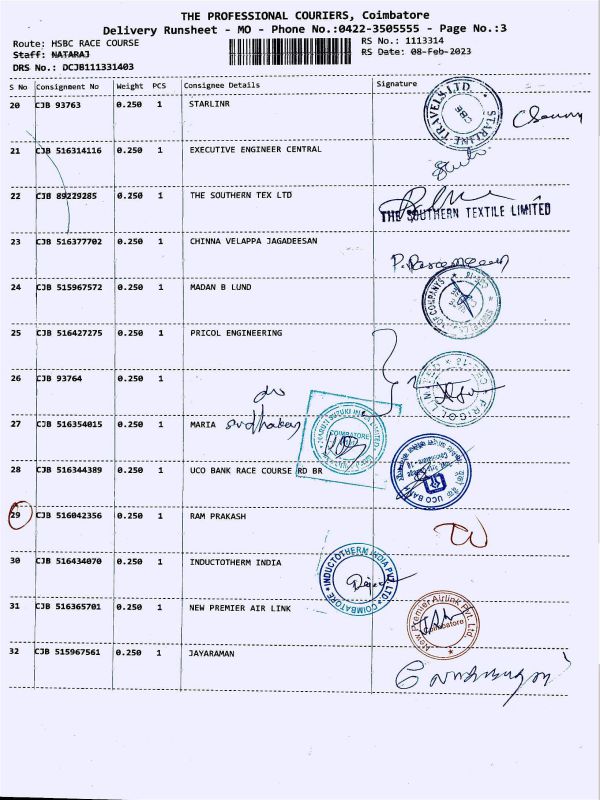 THE PROFESSIONAL COURIERS, Coimbatore
Delivery Runsheet - MO - Phone No.:0422-3505555 - Page No.:3
Route: HSBC RACE COURSE RS No.: 1113314
Staff: NATARAJ RS Date: 08-Feb-2023
DRS No.: DCJB111331403
S No Consignment No Weight PCS Consignee Details Signature
20 CJB 93763 0.250 1 STARLINR
STARLINE TRAVELS LTD. CBE
21 CJB 516314116 0.250 1 EXECUTIVE ENGINEER CENTRAL
22 CJB 89229285 0.250 1 THE SOUTHERN TEX LTD
THE SOUTHERN TEXTILE LIMITED
23 CJB 516377702 0.250 1 CHINNA VELAPPA JAGADEESAN
24 CJB 515967572 0.250 1 MADAN B LUND
25 CJB 516427275 0.250 1 PRICOL ENGINEERING
26 CJB 93764 0.250 1
PRICOL LIMITED
27 CJB 516354015 0.250 1 MARIA
COIMBATORE
28 CJB 516344389 0.250 1 UCO BANK RACE COURSE RD BR
UCO BANK
29 CJB 516042356 0.250 1 RAM PRAKASH
30 CJB 516434070 0.250 1 INDUCTOTHERM INDIA
INDUCTOTHERM INDIA PVT LTD COIMBATORE
31 CJB 516365701 0.250 1 NEW PREMIER AIR LINK
New Premier Airlink Pvt. Ltd. Coimbatore
32 CJB 515967561 0.250 1 JAYARAMAN